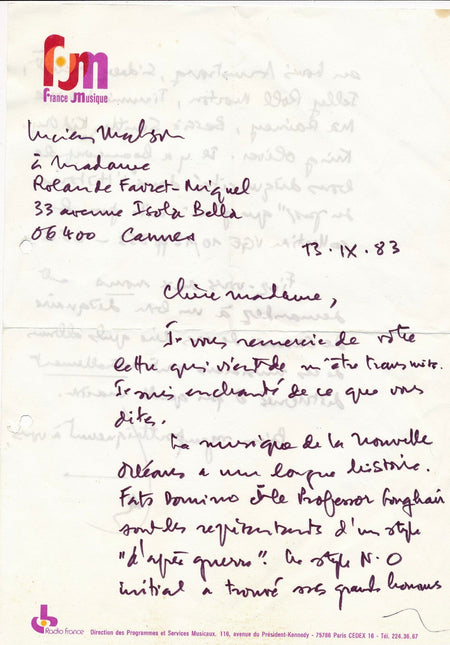 fm
France Musique
Lucien Malson
à Madame
Rolande Fauzet-Miquel
33 avenue Isola Bella
06400 Cannes
13.IX.83
Chère madame,
Je vous remercie de votre
lettre qui vient de m'être transmise.
Je suis enchanté de ce que vous
dites.
La musique de la Nouvelle
Orléans a une longue histoire.
Fats Domino et le Professor Longhair
sont les représentants d'un style
"d'après guerre". Le style N.O
initial a trouvé ses grands hommes
Radio France Direction des Programmes et Services Musicaux, 116, avenue du Président-Kennedy - 75786 Paris CEDEX 16 - Tél. 224.36.67